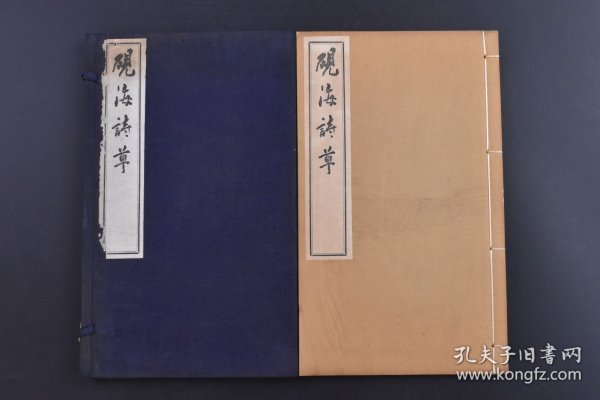 硯海詩草
硯海詩草
孔夫子旧書网
www.kongfz.com